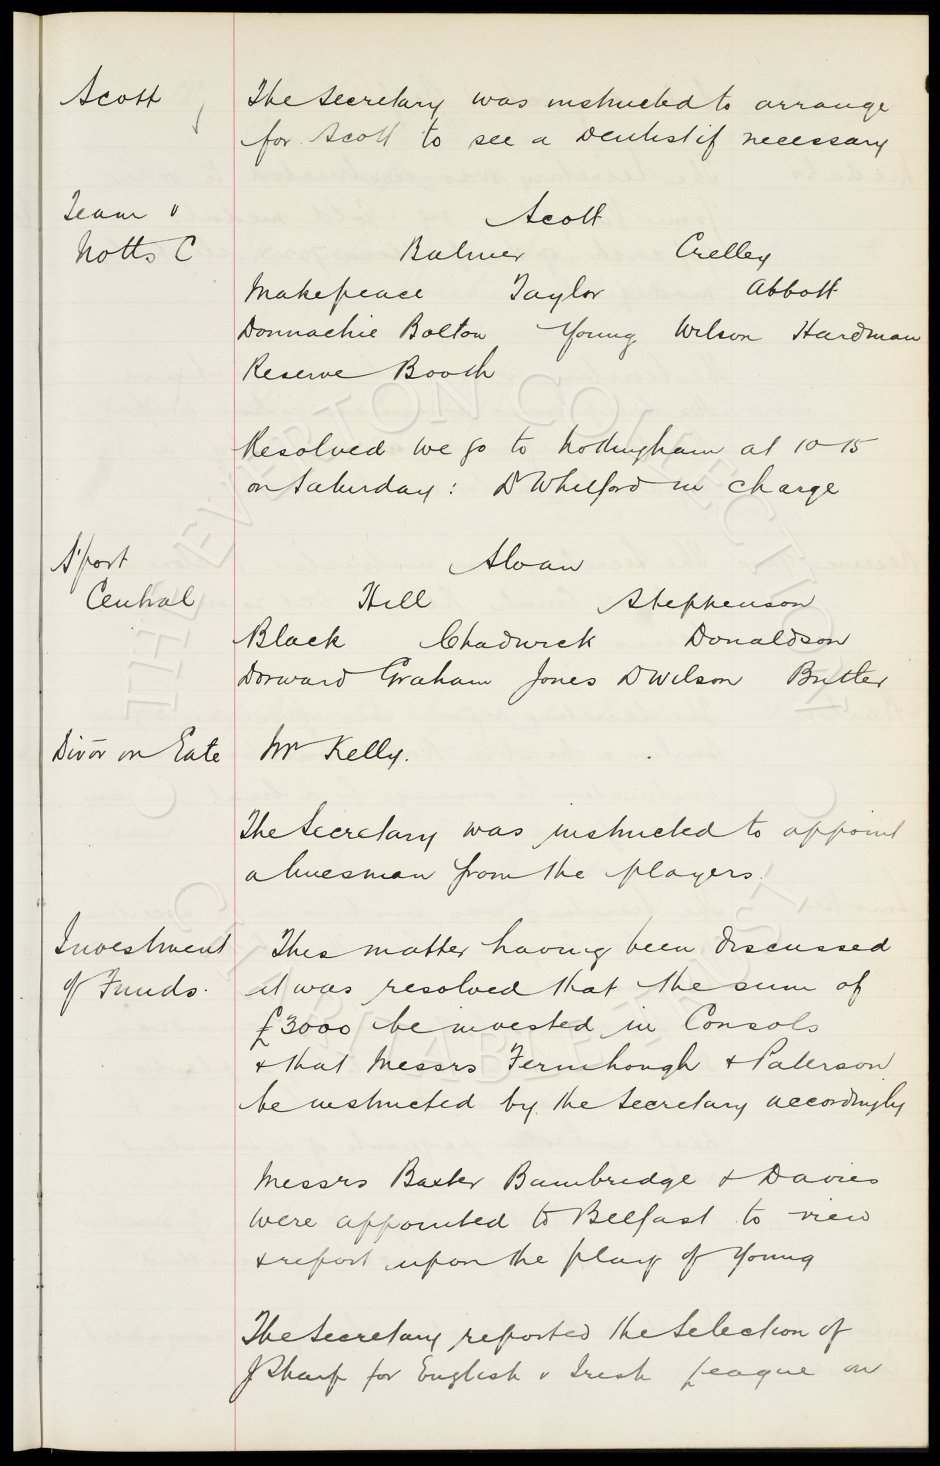 Scott
The Secretary was instructed to arrange
for Scott to see a Dentist if necessary
Team v
Notts C
Scott
Balmer Crelley
Makepeace Taylor Abbott
Donnachie Bolton Young Wilson Hardman
Reserve Booth
Resolved we go to Nottingham at 10-15
on Saturday: D Whitford in charge
S'port
Central
Sloan
Hill Stephenson
Black Chadwick Donaldson
Dorward Graham Jones D Wilson Butler
Divōr on Gate
Mr Kelly.
The Secretary was instructed to appoint
a linesman from the players.
Investment
of Funds.
This matter having been discussed
it was resolved that the sum of
£3000 be invested in Consols
+ that Messrs Fernihough + Paterson
be instructed by the Secretary accordingly
Messrs Baxter Bainbridge + Davies
were appointed to Belfast to view
+ report upon the play of Young
The Secretary reported the Selection of
J Sharp for English v Irish League on
THE EVERTON COLLECTION
CHARITABLE TRUST